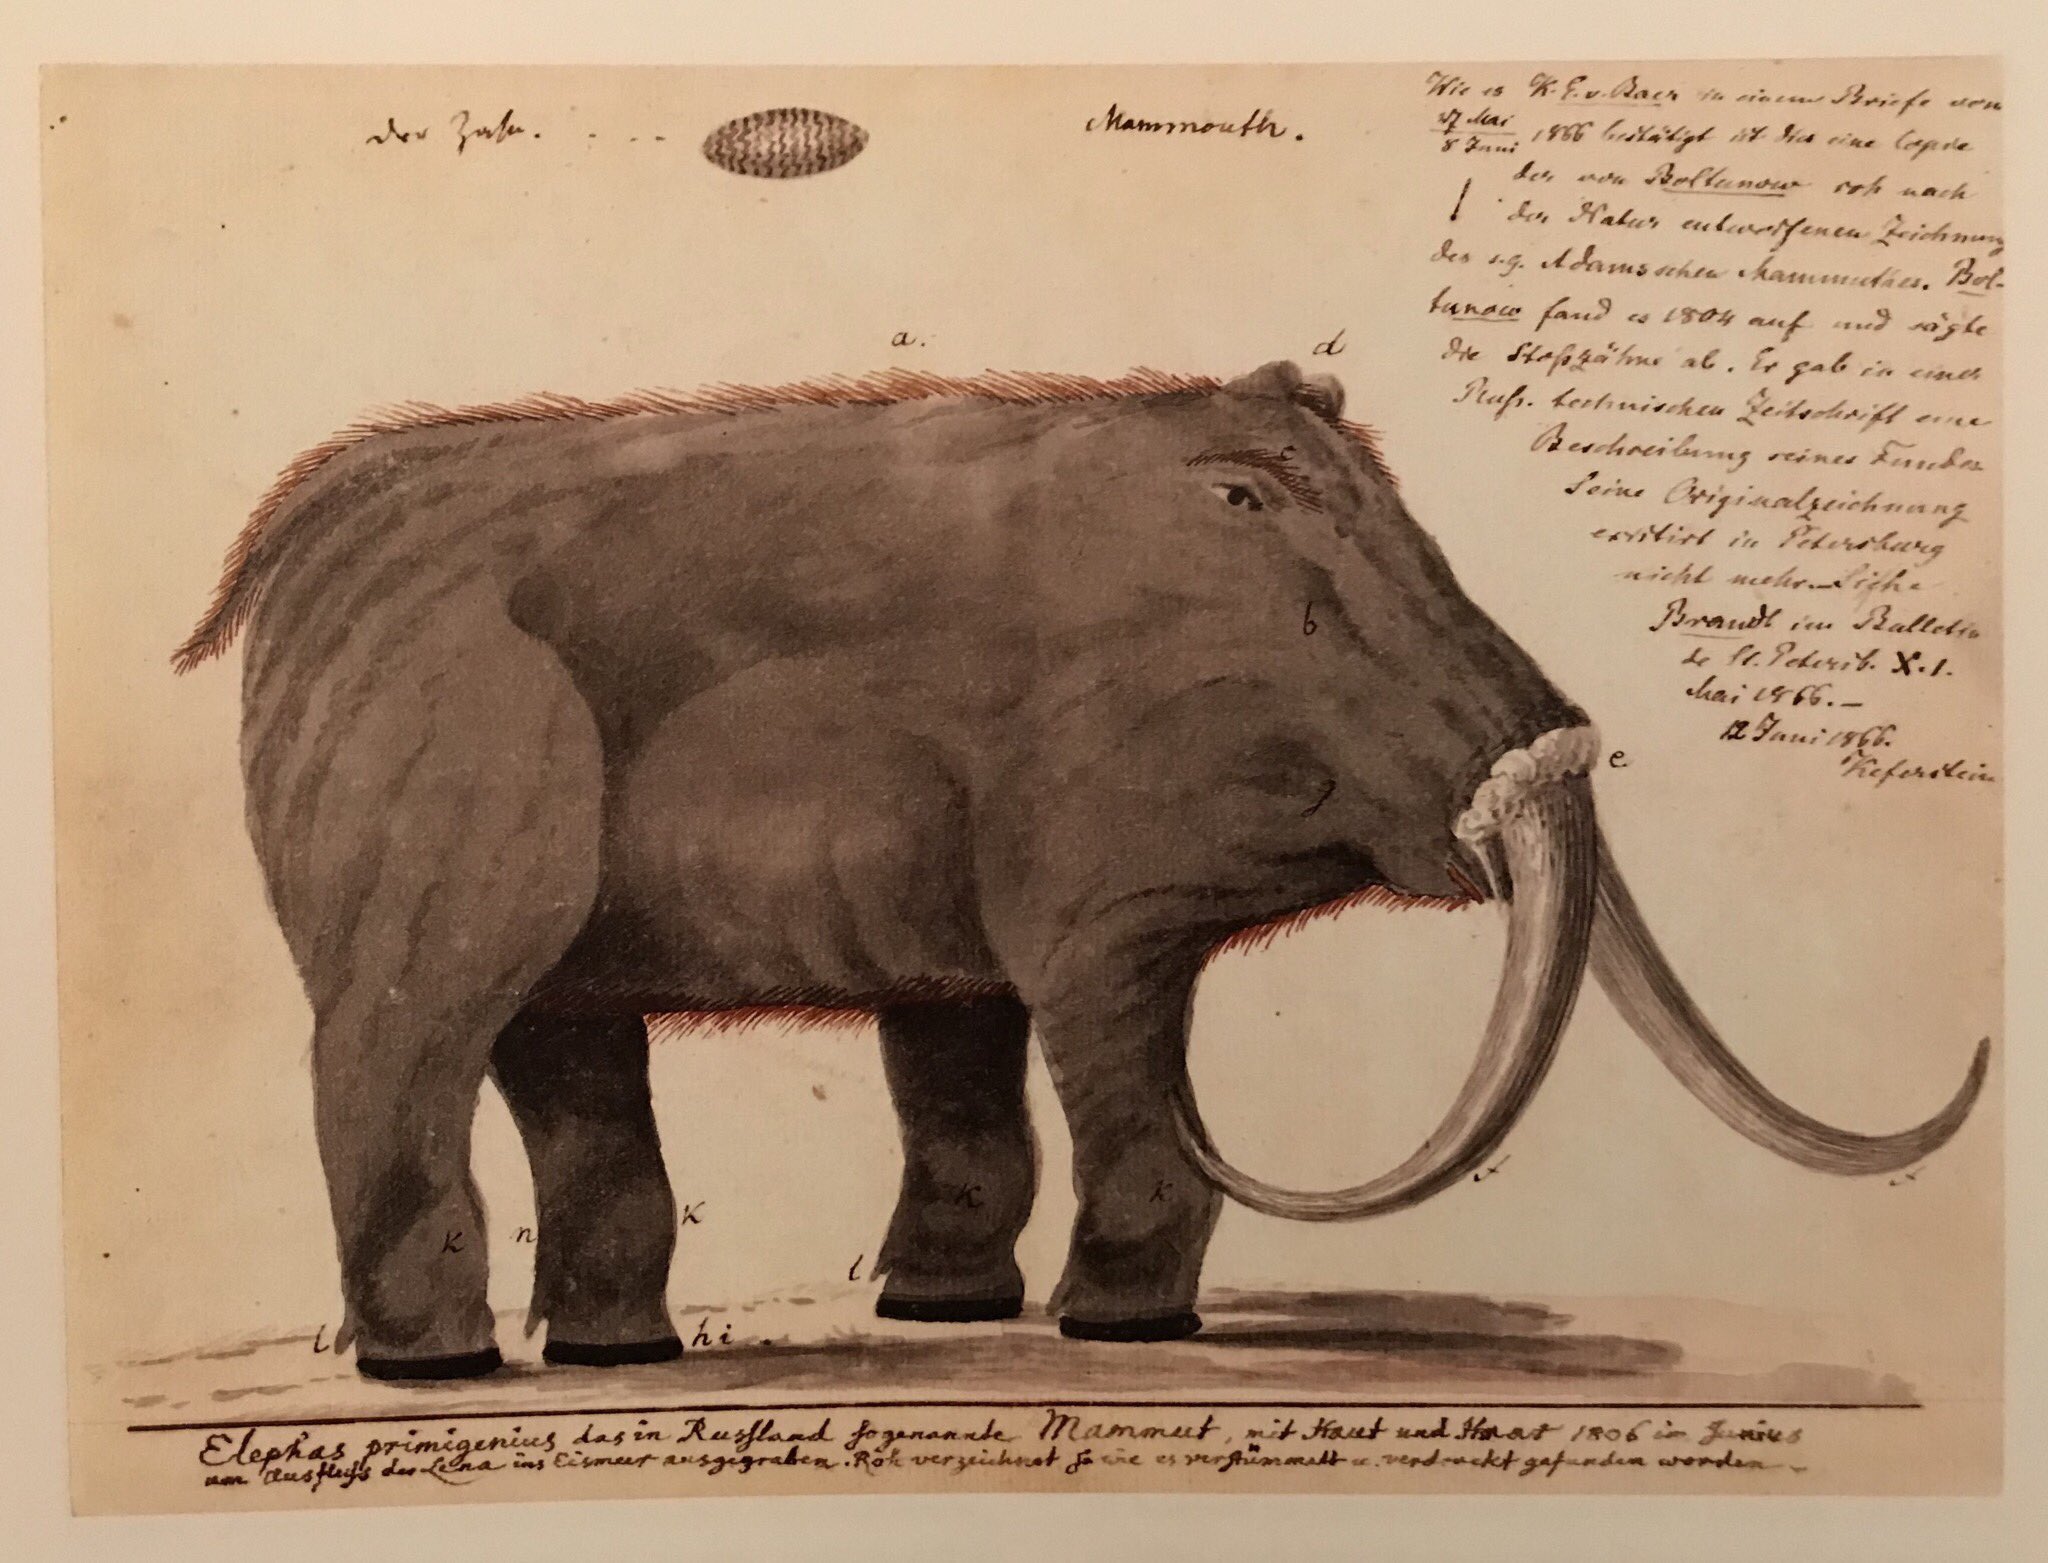 Der Zahn. . . .
Mammouth.
Wie es K. E. v. Baer in einem Briefe vom
27 Mai
8 Juni 1866 bestätigt ist dies eine Copie
der von Boltunow roh nach
der Natur entworfenen Zeichnung
des s.g. Adamsschen Mammuthes. Bol-
tunow fand es 1804 auf und sägte
die Stoßzähne ab. Er gab in einer
Russ. technischen Zeitschrift eine
Beschreibung seines Fundes
Seine Originalzeichnung
existirt in Petersburg
nicht mehr. Siehe
Brandt im Bulletin
de St. Petersb. X. 1.
Mai 1866. —
12 Juni 1866.
Keferstein
a.
d
c
b
e
g
f
f
k
n
K
K
K
l
l
h i
Elephas primigenius das in Russland sogenannte Mammut, mit Haut und Haar 1806 im Junius
am Ausfluss der Lena ins Eismeer ausgegraben. Roh verzeichnet so wie es verstümmelt u. verdreckt gefunden worden